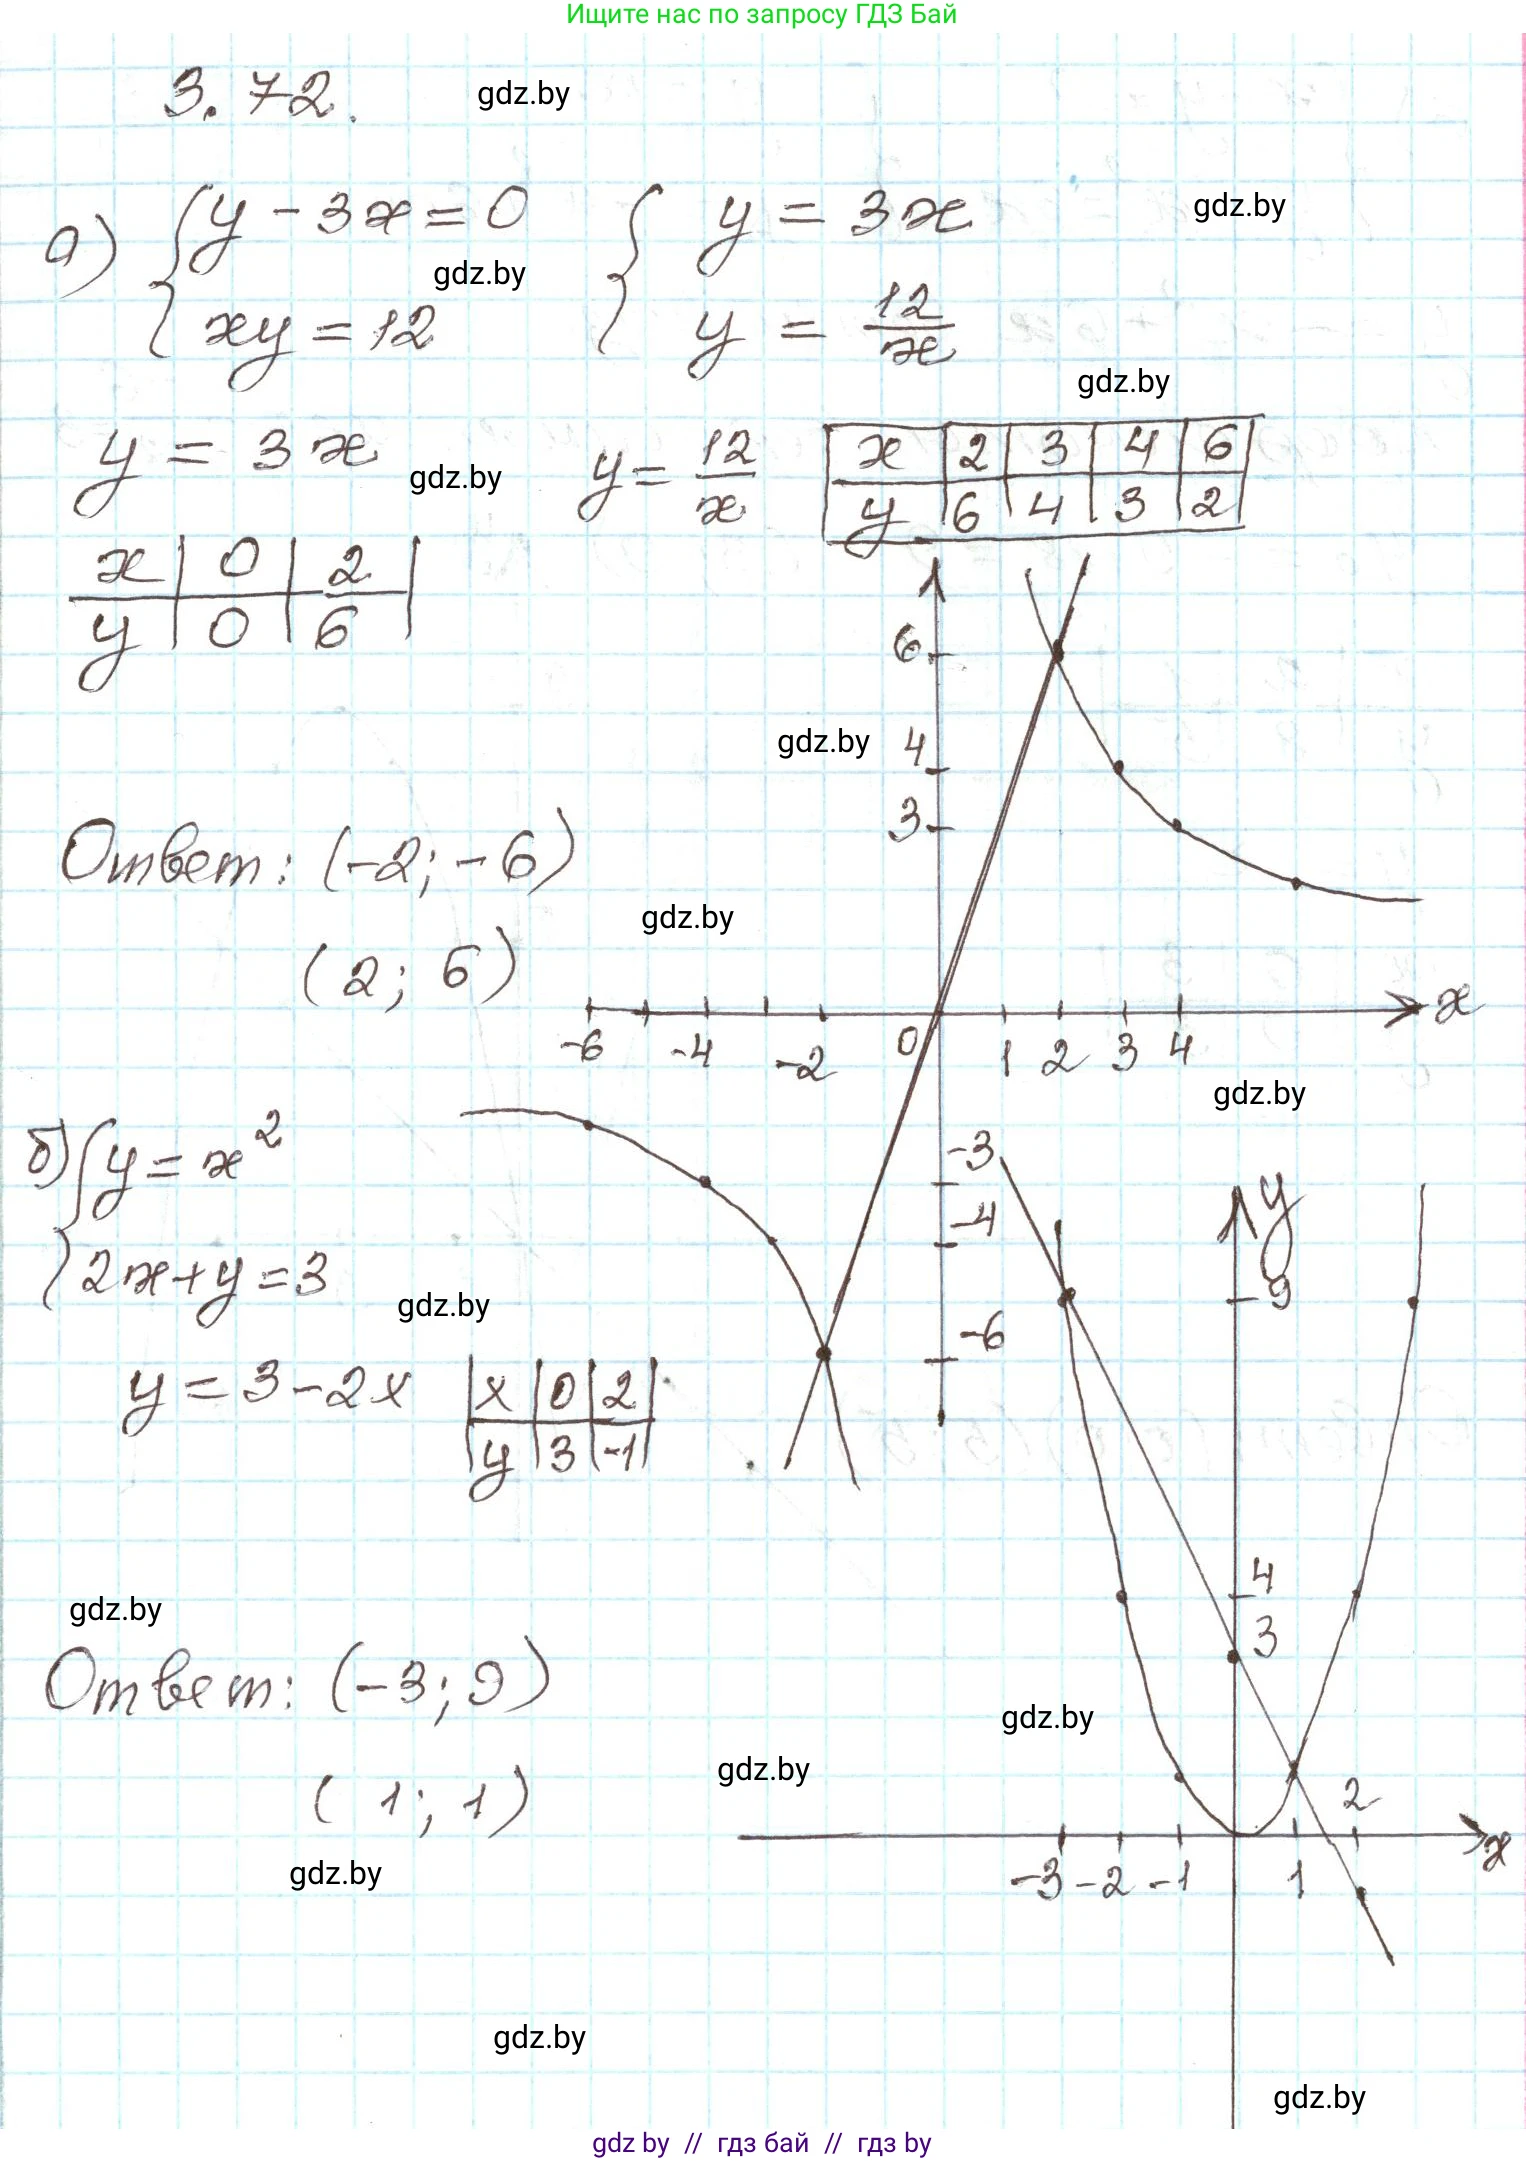 Ищите нас по запросу ГДЗ Бай
3.72. gdz.by
а) { y - 3x = 0 { y = 3x gdz.by
gdz.by
xy = 12 y = 12/x
gdz.by
y = 3x gdz.by y = 12/x x | 2 | 3 | 4 | 6
y | 6 | 4 | 3 | 2
x | 0 | 2
y | 0 | 6
6
gdz.by 4
3
Ответ: (-2; -6)
gdz.by
(2; 6)
x
-6 -4 -2 0 1 2 3 4
gdz.by
б) { y = x² -3
y
-4
2x + y = 3 9
gdz.by
-6
y = 3 - 2x x | 0 | 2
y | 3 | -1
4
gdz.by
3
Ответ: (-3; 9)
gdz.by
gdz.by
(1; 1) 2
x
gdz.by -3 -2 -1 1
gdz.by
gdz.by
gdz by // гдз бай // гдз by